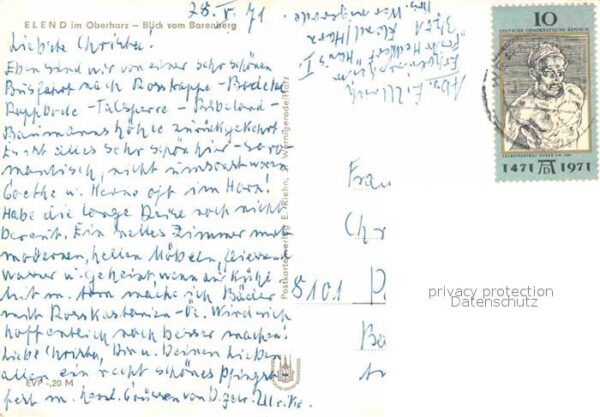 ELEND im Oberharz – Blick vom Barenberg
25. V. 71
Liebste Christa!
Eben sind wir von einer sehr schönen
Busfahrt nach Rosstrappe - Bodetal
Rappbode - Talsperre - Rübeland -
Baumannshöhle zurückgekehrt.
Es ist alles sehr schön hier - so ro-
mantisch, nicht umsonst waren
Goethe u. Heine oft im Harz!
Habe die lange Reise noch nicht
bereut. Ein helles Zimmer mit
modernen, hellen Möbeln, fliessend
warmer u. geheizt wenn auf Kühle
mit m. Arm mache ich Bäder
mit Rosskastanien - Oe. Wird sich
hoffentlich noch besser machen!
Liebe Christa, Dir u. Deinen Lieben
allen ein recht schönes Pfingst
fest m. herzl. Grüssen von D.
EVP -,20 M
Postkartenverlag E. Riehn, Wernigerode/Harz
Abs. E. Ullrich
Haus I
3701 Elend/Harz
Krs. Wernigerode
10
DEUTSCHE DEMOKRATISCHE REPUBLIK
1471 1971
Frau
Chr
5101
privacy protection
Datenschutz